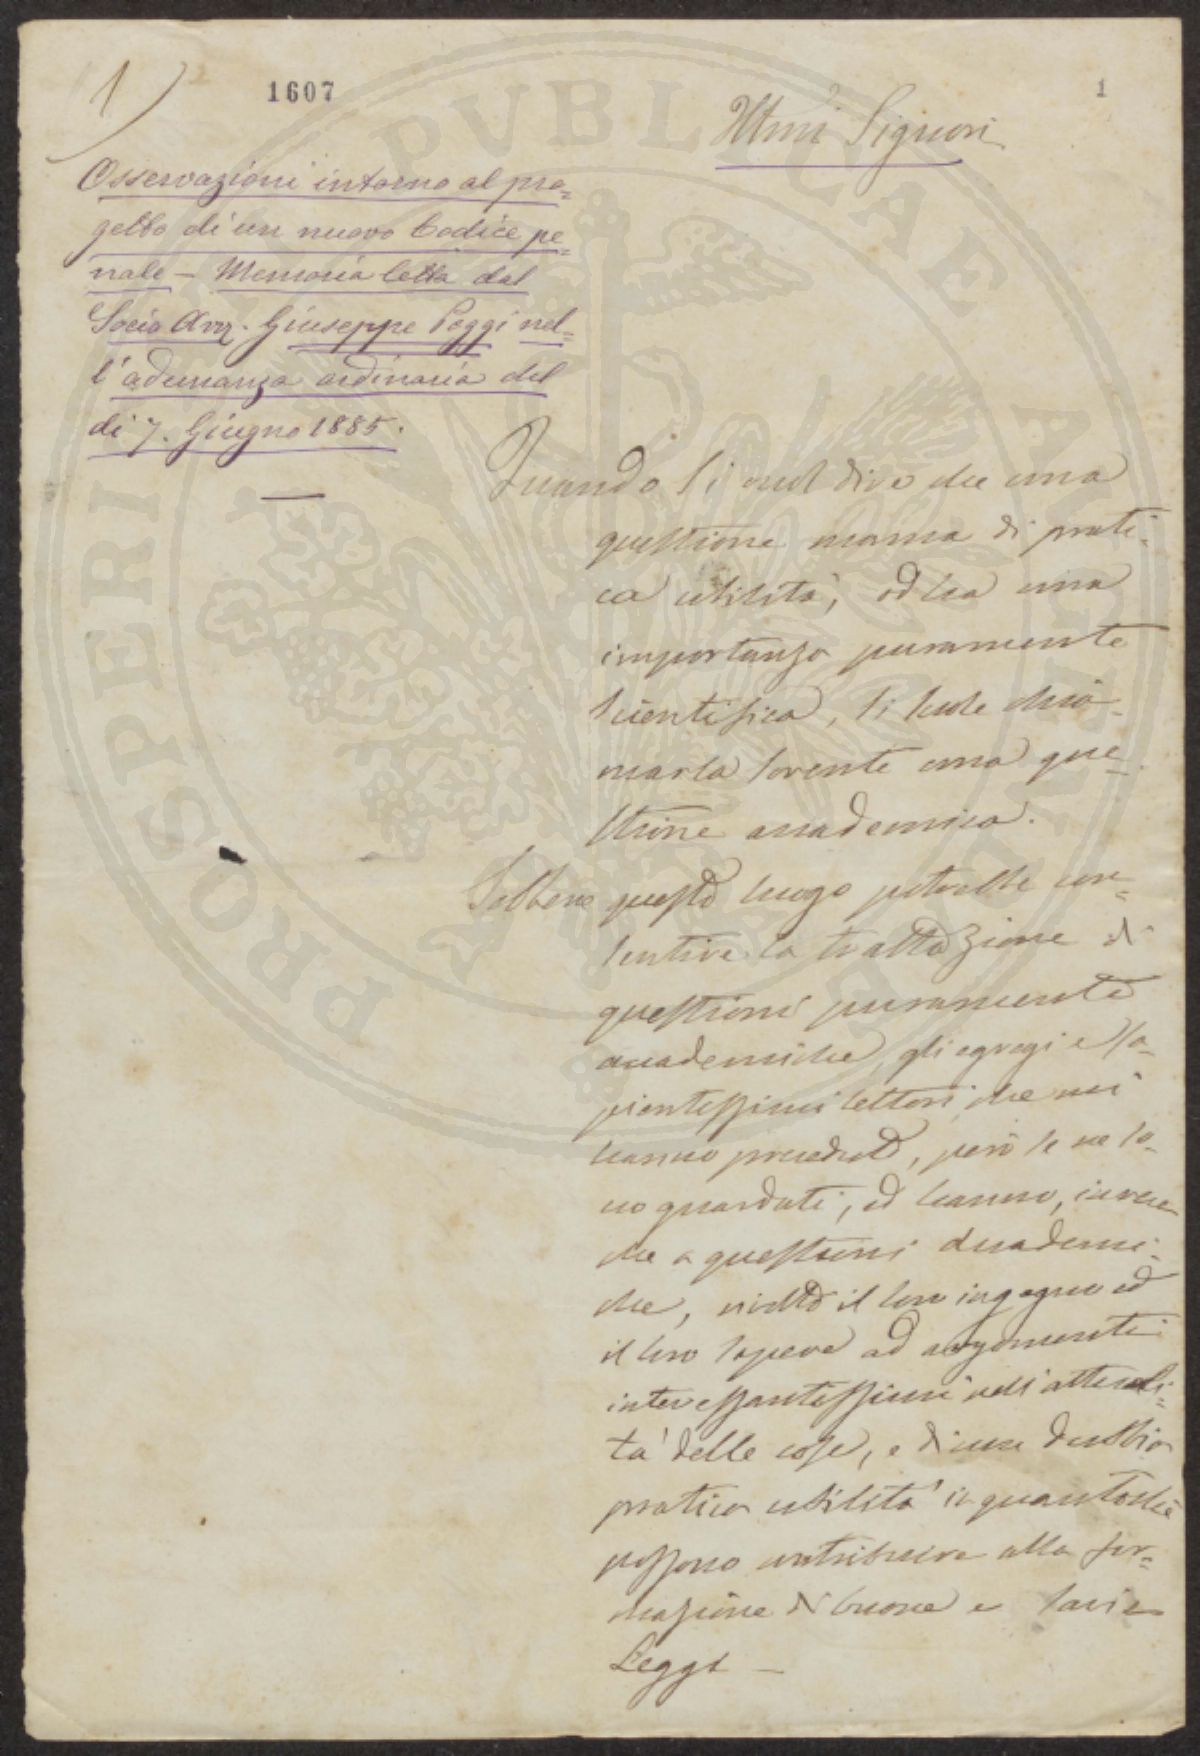 1)
1607
1
Illmi Signori
Osservazioni intorno al pro=
getto di un nuovo Codice pe=
nale — Memoria letta dal
Socio Avv. Giuseppe Poggi nel=
l'adunanza ordinaria del
di 7. Giugno 1885.
Quando si vuol dire che una
questione manca di prati-
ca utilità, od ha una
importanza puramente
scientifica, si suole chia-
marla sovente una que-
stione accademica.
Sebbene questo luogo potrebbe con=
sentire la trattazione di
questioni puramente
accademiche, gli egregi e sa-
pientissimi lettori che mi
hanno preceduto, però se ne so-
no guardati, ed hanno, invece
che a questioni accademi-
che, rivolto il loro ingegno ed
il loro sapere ad argomenti
interessantissimi nell'attuali=
tà delle cose, e di non dubbia
pratica utilità in quantoché
possono contribuire alla for=
mazione di buone e savie
Leggi —
PROSPERITATI PVBLICAE AVGENDAE